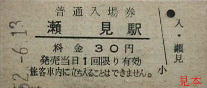 普通入場券
瀬見駅
料金30円
発売当日1回限り有効
旅客車内に立ち入ることはできません。
小
○人・瀬見
52.-6.13
見本